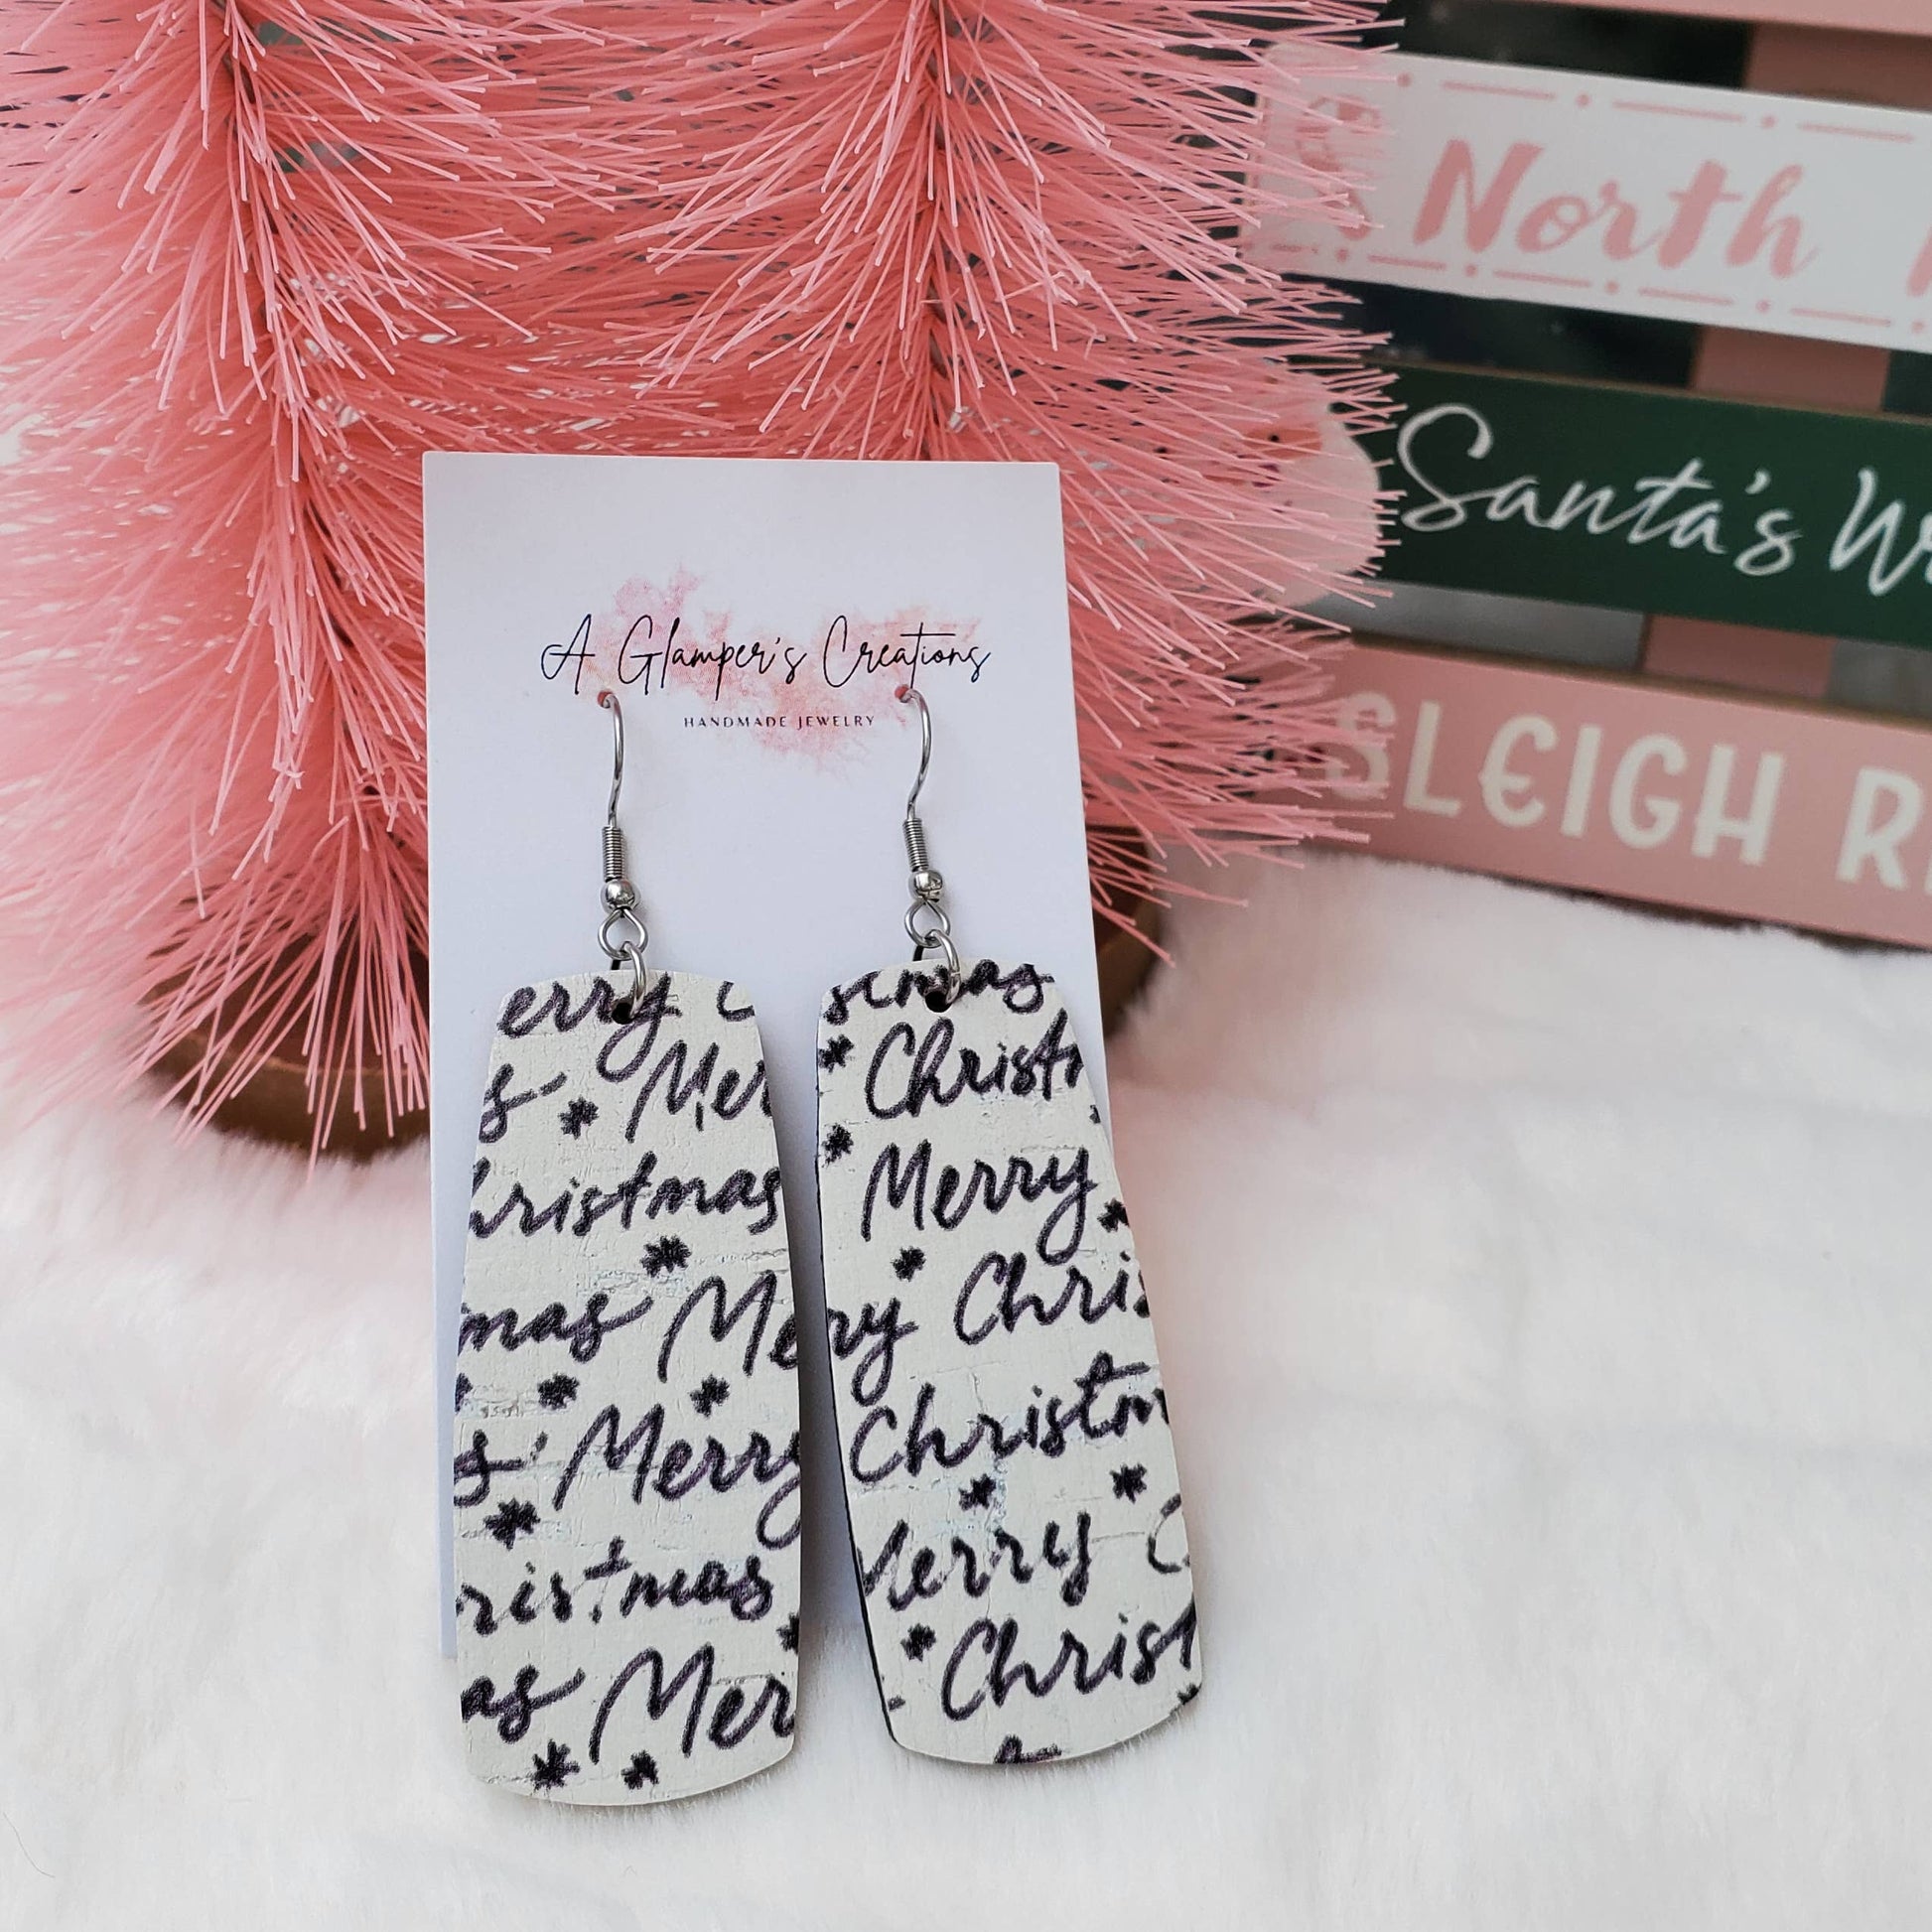 North
Santa's
SLEIGH
A Glamper's Creations
HANDMADE JEWELRY
erry C
s Mer
hristmas
mas Me
s Merry
ristmas
as Mer
stmas
Christm
Merry
rry Chris
Christm
Merry C
Christ